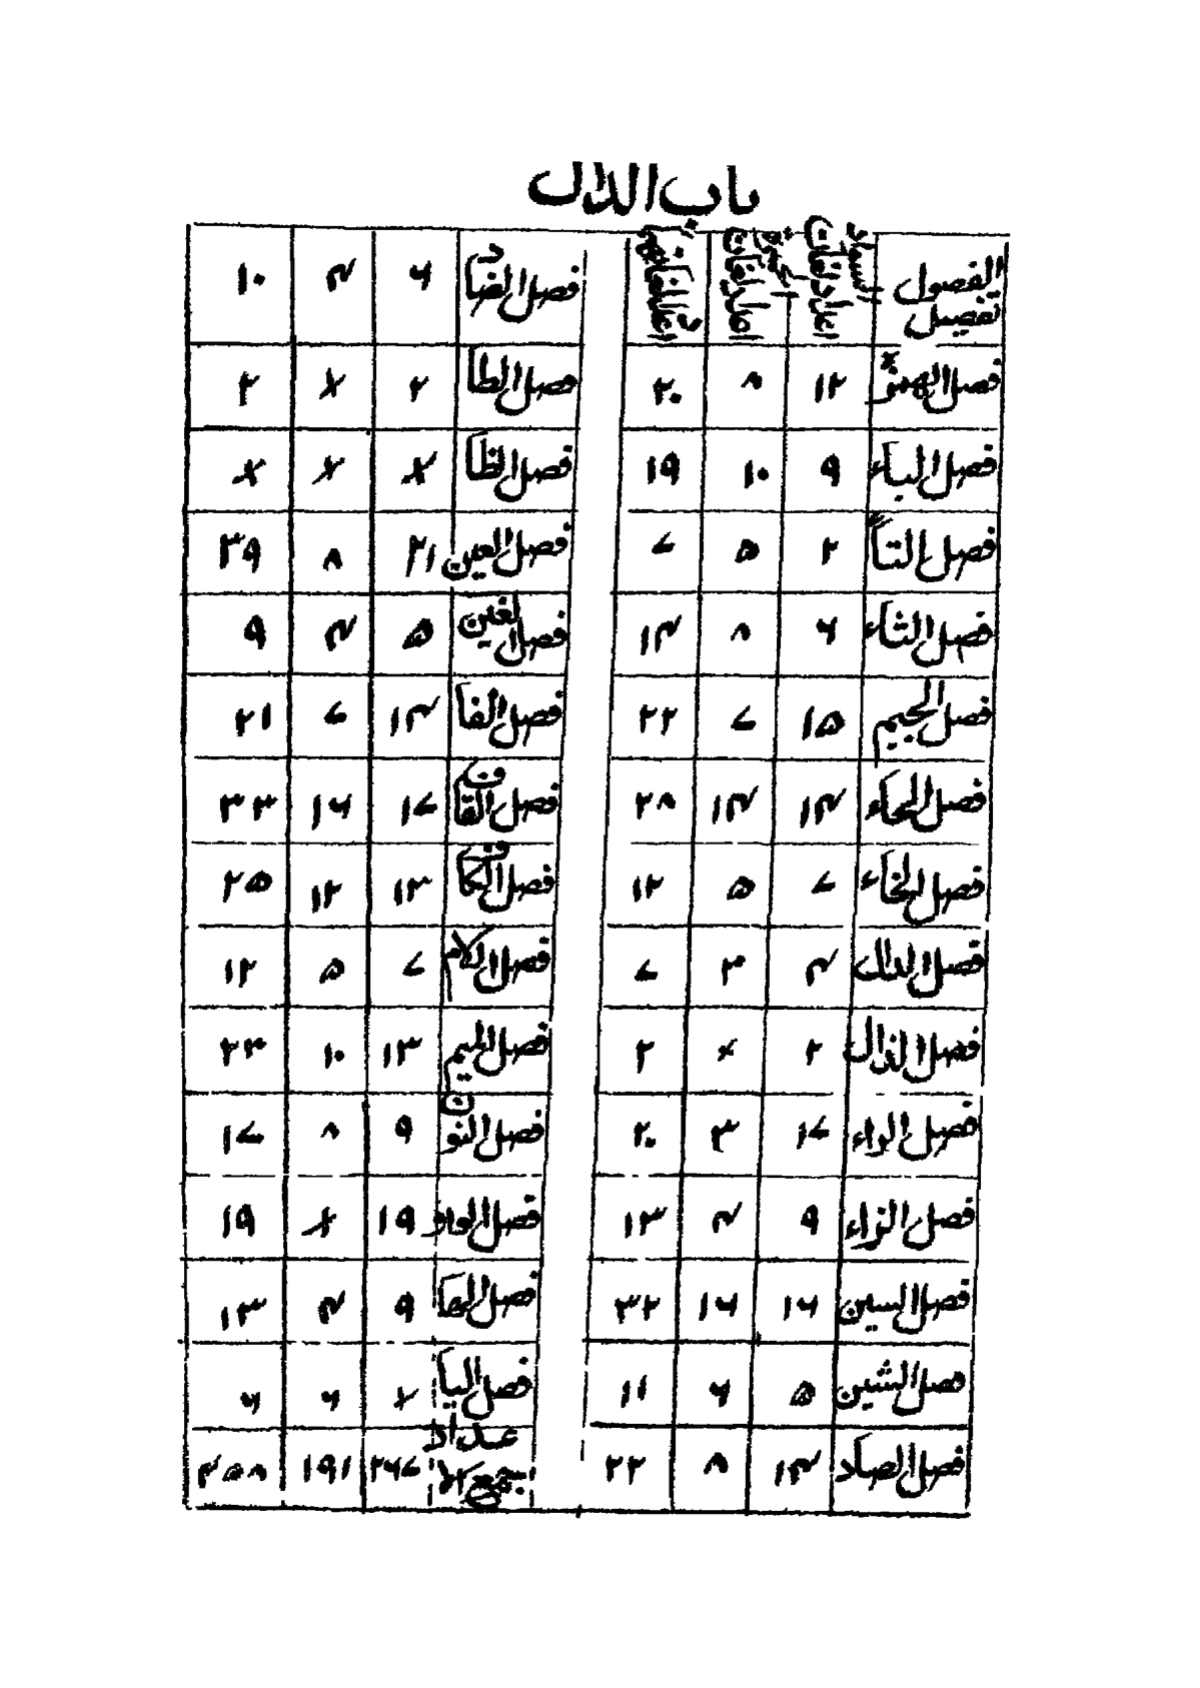 باب الدال
تفصيل الفصول
فصل الهمزة ١٢ ٨ ٢٠
فصل الباء ٩ ١٠ ١٩
فصل التاء ٢ ٥ ٧
فصل الثاء ٦ ٨ ١٤
فصل الجيم ١٥ ٧ ٢٢
فصل الحاء ١٤ ١٤ ٢٨
فصل الخاء ٧ ٥ ١٢
فصل الدال ٤ ٣ ٧
فصل الذال ٢ × ٢
فصل الراء ١٧ ٣ ٢٠
فصل الزاء ٩ ٤ ١٣
فصل السين ١٦ ١٦ ٣٢
فصل الشين ٥ ٦ ١١
فصل الصاد ١٤ ٨ ٢٢
فصل الضاد ٦ ٤ ١٠
فصل الطا ٢ × ٢
فصل الظا × × ×
فصل العين ٣١ ٨ ٣٩
فصل الغين ٥ ٤ ٩
فصل الفا ١٤ ٧ ٢١
فصل القاف ١٧ ١٦ ٣٣
فصل الكاف ١٣ ١٢ ٢٥
فصل اللام ٧ ٥ ١٢
فصل الميم ١٣ ١٠ ٢٣
فصل النون ٩ ٨ ١٧
فصل الواو ١٩ × ١٩
فصل الها ٩ ٤ ١٣
فصل اليا × ٦ ٦
٢٦٧ ١٩١ ٤٥٨